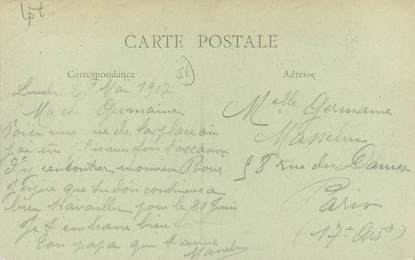 Lot
CARTE POSTALE
Correspondance
51)
Adresse
27 Mai 1917
Ma Germaine
Voici une vue de la place où
j'ai eu l'occasion
d'y rencontrer monsieur
J'espère que tu continues à
bien travailler pour le 21 Juin
Je t'embrasse bien
Ton papa qui t'aime
Melle Germaine
58 rue des Dames
Paris
(17e Arrt)